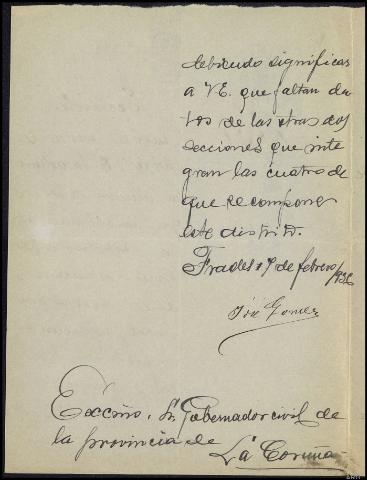 debiendo significar
a V.E. que faltan da
tos de las otras dos
secciones que inte
gran las cuatro de
que se compone
este distrito.
Frades 17 de febrero/936
Gomez
Excmo. Sr. Gobernador civil de
la provincia de
La Coruña